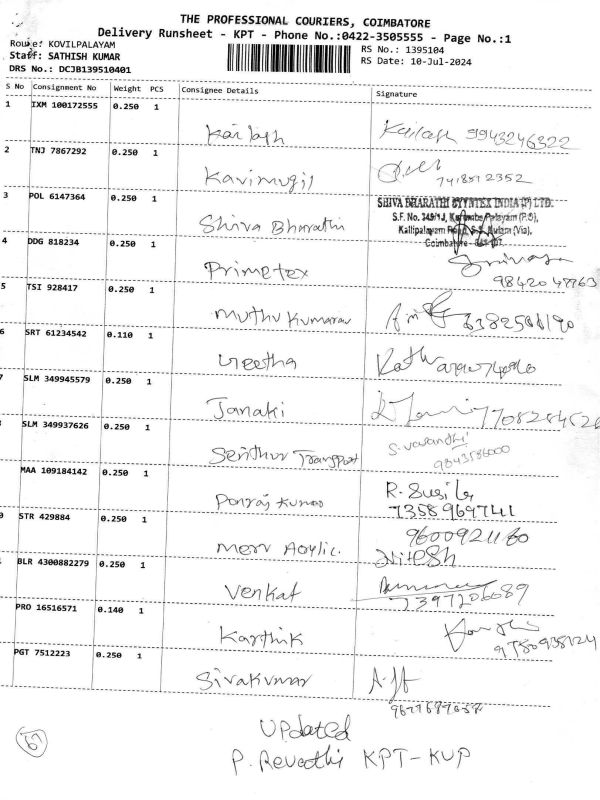 THE PROFESSIONAL COURIERS, COIMBATORE
Delivery Runsheet - KPT - Phone No.:0422-3505555 - Page No.:1
Route: KOVILPALAYAM
Staff: SATHISH KUMAR
DRS No.: DCJB139510401
RS No.: 1395104
RS Date: 10-Jul-2024
S No Consignment No Weight PCS Consignee Details Signature
1 IXM 100172555 0.250 1
Kailash Kailash 9943246322
2 TNJ 7867292 0.250 1
Kavimugil 7418512352
3 POL 6147364 0.250 1
Shiva Bharathi
SHIVA BHARATHI SYNTEX INDIA (P) LTD.
S.F. No. 349/1J, Palayam (P.O),
Kallipalayam Road, Mulam (Via),
Coimbatore
4 DDG 818234 0.250 1
Primetex
5 TSI 928417 0.250 1
Muthu Kumarav
6 SRT 61234542 0.110 1
Geetha
7 SLM 349945579 0.250 1
Janaki
SLM 349937626 0.250 1
Senthur Transport 9843586000
MAA 109184142 0.250 1
Ponraj Kumar R. Susila
7358969741
0 STR 429884 0.250 1
Merv Acylic. 9600921160
Nitesh
1 BLR 4300882279 0.250 1
Venkat 7397206089
PRO 16516571 0.140 1
Karthik
PGT 7512223 0.250 1
Sivakumar
Updated
P. Revathi KPT-KUP
67